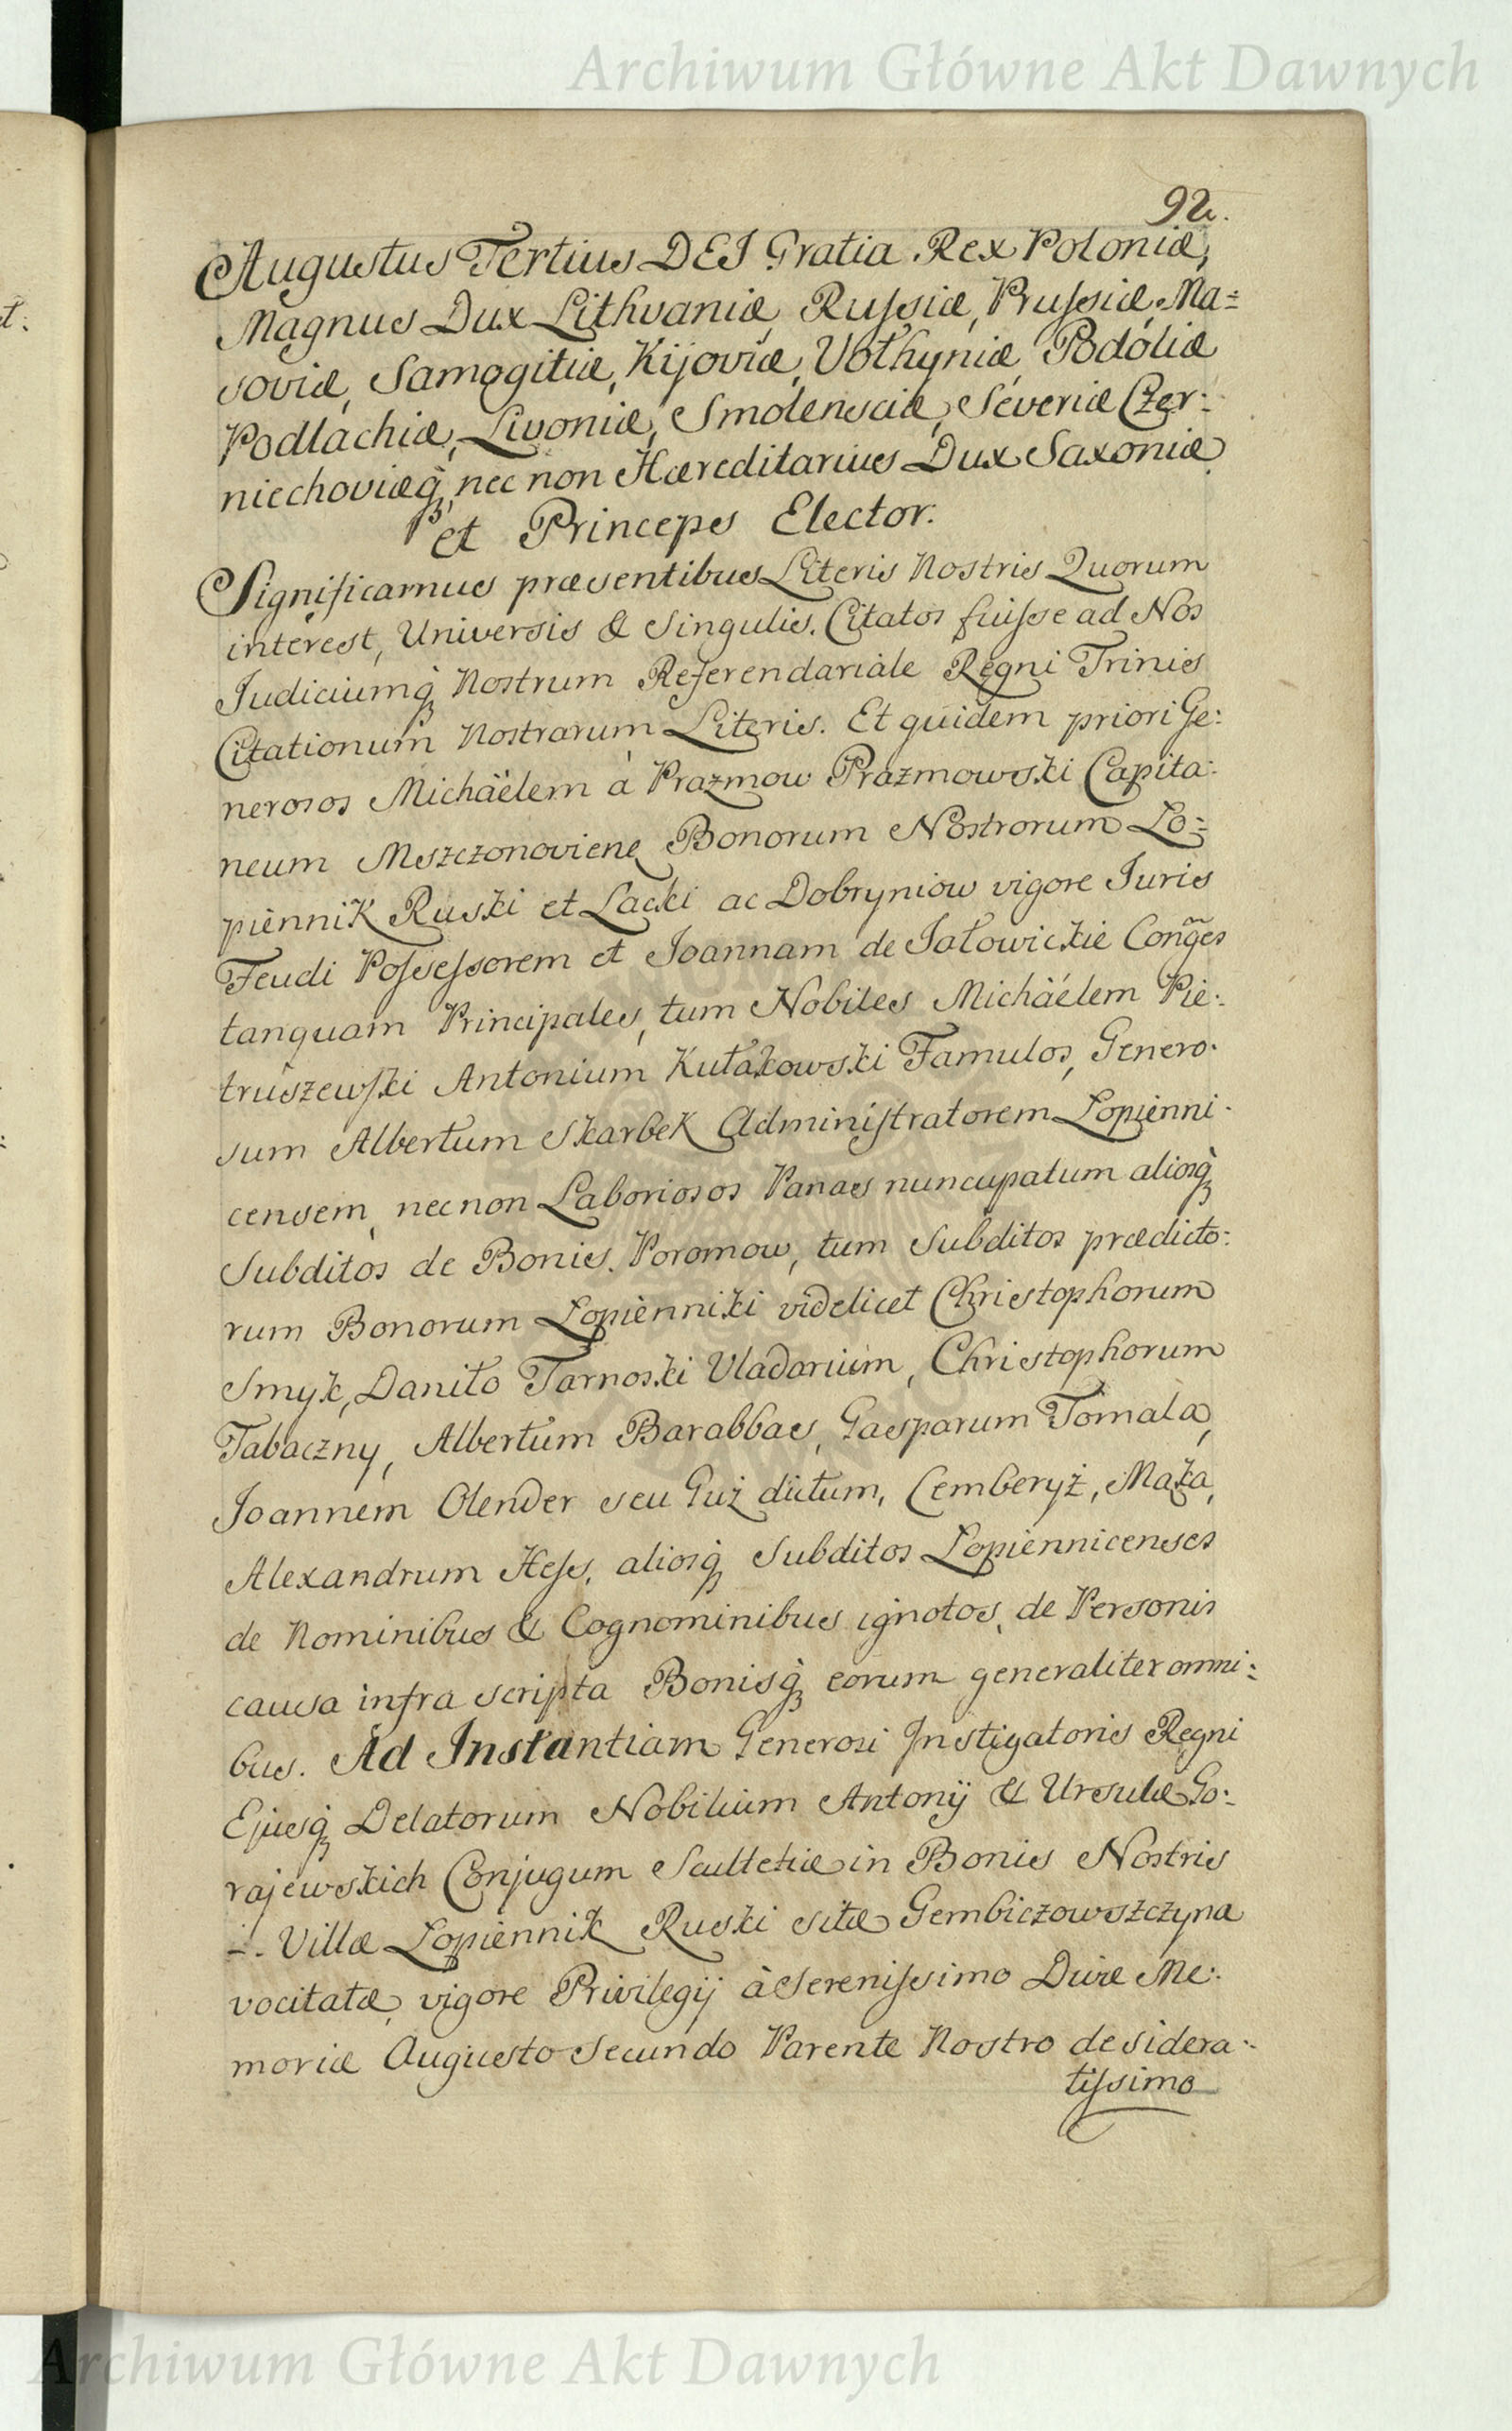 Archiwum Główne Akt Dawnych
92.
Augustus Tertius DEI Gratia Rex Poloniæ,
Magnus Dux Lithvaniæ, Russiæ, Prussiæ, Ma=
soviæ, Samogitiæ, Kijoviæ, Volhyniæ, Podoliæ
Podlachiæ, Livoniæ, Smolensciæ, Severiæ Czer:
niechoviæq́ꝫ, nec non Hæreditarius Dux Saxoniæ
et Princeps Elector.
Significamus præsentibus Literis Nostris Quorum
interest, Universis & Singulis. Citatos fuisse ad Nos
Judiciumq́ꝫ Nostrum Referendariale Regni Trinis
Citationum Nostrarum Literis. Et quidem priori Ge:
nerosos Michäelem à Prazmow Prazmowski Capita:
neum Mszczonoviene Bonorum Nostrorum Lo=
piennik Ruski et Lacki ac Dobryniow vigore Juris
Feudi Possessorem et Joannam de Jałowickie Conges
tanquam Principales, tum Nobiles Michäélem Pie:
truszewski Antonium Kułakowski Famulos, Genero:
sum Albertum Skarbek Administratorem Lopienni:
censem, necnon Laboriosos Panas nuncupatum aliosq́ꝫ
Subditos de Bonis Poromow, tum Subditos prædicto:
rum Bonorum Lopienniki videlicet Christophorum
Smyk, Daniło Tarnoski Vladarium, Christophorum
Tabaczny, Albertum Barabbas, Gasparum Tomala,
Joannem Olender seu Guż dictum, Cemberyż, Maka,
Alexandrum Hess, aliosq́ꝫ Subditos Lopiennicenses
de Nominibus & Cognominibus ignotos, de Personis
causa infra scripta Bonisq́ꝫ eorum generaliter omni:
bus. Ad Instantiam Generosi Instigatoris Regni
Ejusq́ꝫ Delatorum Nobilium Antonij & Ursulæ Go:
rajewskich Conjugum Scultetiæ in Bonis Nostris
-. Villæ Lopiennik Ruski sitæ Gembiczowszczyna
vocitatæ, vigore Privilegij à Serenissimo Divæ Me:
moriæ Augusto Secundo Parente Nostro desidera:
tissimo
Archiwum Główne Akt Dawnych